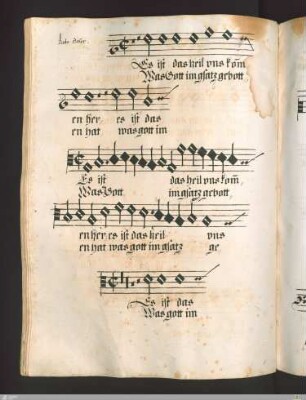 Es ist das heil vns kom̄
Was Gott im gsatz gebott
en her, es ist das
en hat was gott im
Es ist das heil vns kom̄,
Was Gott im gsatz gebott,
en her, es ist das heil vns
en hat was gott im gsatz ge
Es ist das
Was gott im